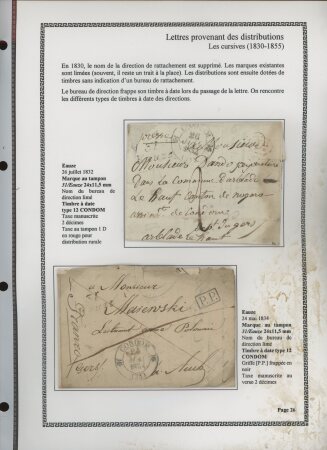 Lettres provenant des distributions
Les cursives (1830-1855)
En 1830, le nom de la direction de rattachement est supprimé. Les marques existantes
sont limées (souvent, il reste un trait à la place). Les distributions sont ensuite dotées de
timbres sans indication du bureau de rattachement.
Le bureau de direction frappe son timbre à date lors du passage de la lettre. On rencontre
les différents types de timbres à date des directions.
Eauze
26 juillet 1832
Marque au tampon
31/Eauze 24x11,5 mm
Nom du bureau de
direction limé
Timbre à date
type 12 CONDOM
Taxe manuscrite
2 décimes
Taxe au tampon 1 D
en rouge pour
distribution rurale
Monsieur
Monsieur
dans la Commune d'arblade
Le haut Canton de nogaro
arblade le haut
Eauze
24 mai 1834
Marque au tampon
31/Eauze 24x11,5 mm
Nom du bureau de
direction limé
Timbre à date type 12
CONDOM
Griffe [P.P.] frappée en
noir
Taxe manuscrite au
verso 2 décimes
a Monsieur
P.P.
Lieutenant
CONDOM
Franco
Gers
a Auch
Page 26